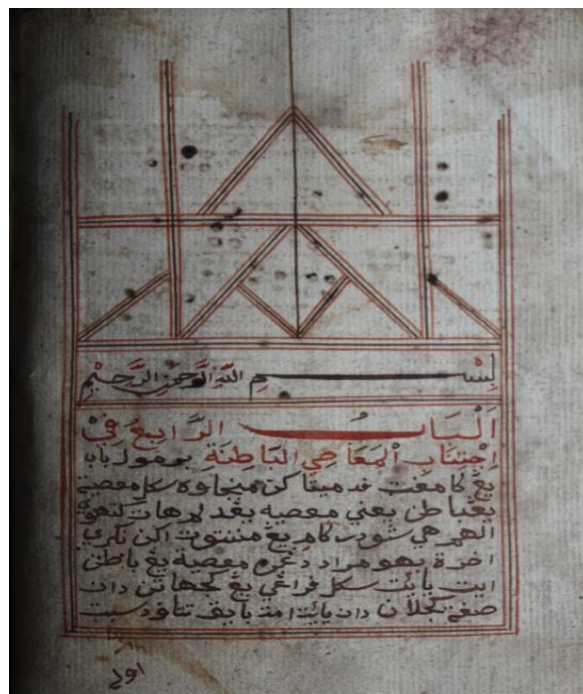 بِسْمِ اللهِ الرَّحْمٰنِ الرَّحِيْمِ
اَلْبَابُ الرَّابِعُ فِيْ
اِجْتِنَابِ الْمَعَاصِي الْبَاطِنَةِ برمول باب
يڠ كامفت فد ميتاكن منجاوه سكل معصية
يڠ باطن يعني معصية يڠد دالم هات كتهوي
الهم هي سودراكام يڠ منونتوت اكن نكري
اخرة بهو مراد دڠن معصية يڠ باطن
ايت يائت سكل فراڠي يڠ كجهاتن دان
صفة كجلان دان يائت امت باپق تتاف دست
اوله